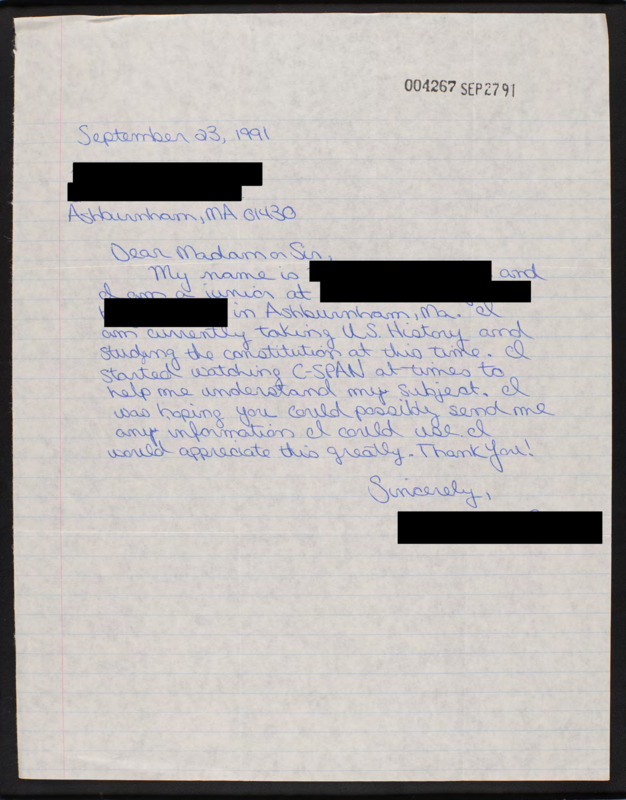 004267 SEP 27 91
September 23, 1991
Ashburnham, MA 01430
Dear Madam or Sir,
My name is and
I am a junior at
in Ashburnham, Ma. I
am currently taking U.S. History and
studing the constitution at this time. I
started watching C-SPAN at times to
help me understand my subject. I
was hoping you could possibly send me
any information I could use. I
would appreciate this greatly. Thank You!
Sincerely,